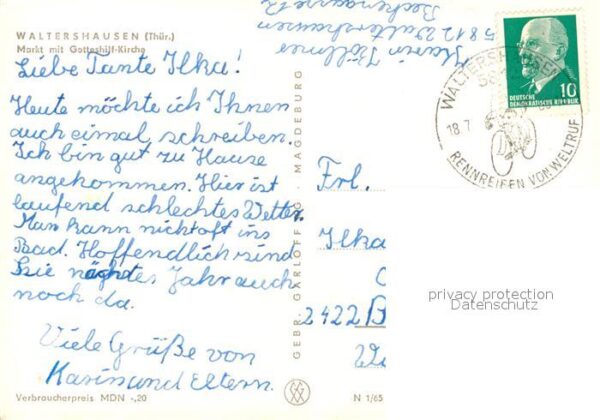 WALTERSHAUSEN (Thür.)
Markt mit Gotteshilf-Kirche
Liebe Tante Ilka!
Heute möchte ich Ihnen
auch eimal schreiben.
Ich bin gut zu Hause
angekommen. Hier ist
laufend schlechtes Wetter.
Man kann nicht oft ins
Bad. Hoffendlich sind
Sie nächstes Jahr auch
noch da.
Viele Grüße von
Karin und Eltern.
Verbraucherpreis MDN -,20
GEBR. GARLOFF KG · MAGDEBURG
N 1/65
Karin
5812 Waltershausen
DEUTSCHE
DEMOKRATISCHE REPUBLIK
10
WALTERSHAUSEN
18.7
RENNREIFEN VON WELTRUF
Frl.
Ilka
2422 B
privacy protection
Datenschutz